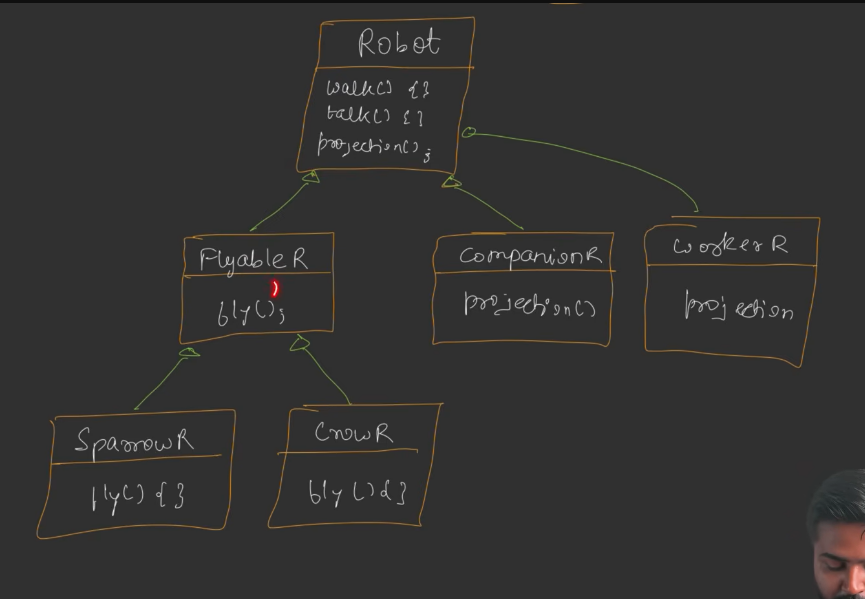 Robot
walk() {}
talk() {}
projection();
FlyableR
fly();
CompanionR
projection()
workerR
projection
SparrowR
fly() {}
CrowR
fly() {}